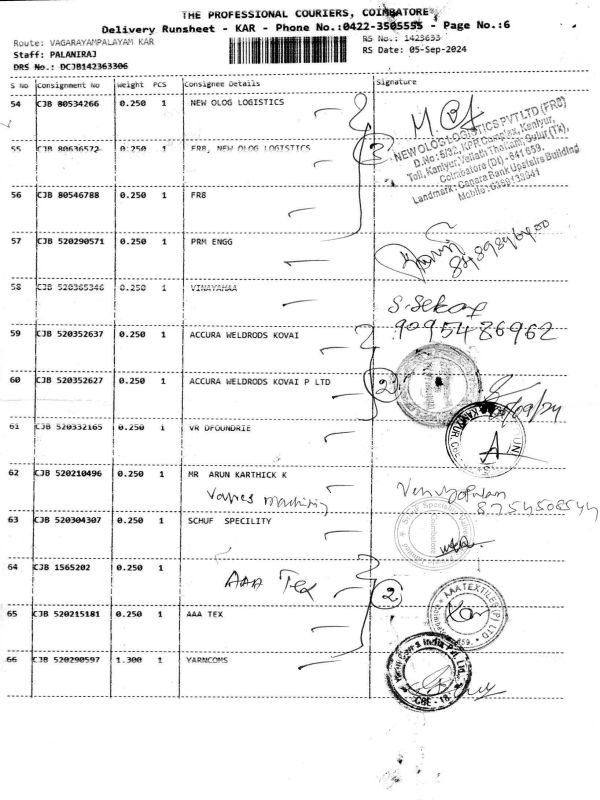 THE PROFESSIONAL COURIERS, COIMBATORE
Delivery Runsheet - KAR - Phone No.:0422-3505555 - Page No.:6
Route: VAGARAYAMPALAYAM KAR
RS No.: 1423633
Staff: PALANIRAJ
RS Date: 05-Sep-2024
DRS No.: DCJB142363306
S No Consignment No Weight PCS Consignee Details Signature
54 CJB 80534266 0.250 1 NEW OLOG LOGISTICS
55 CJB 80636572 0.250 1 FR8, NEW OLOG LOGISTICS
NEW OLOG LOGISTICS PVT LTD (FR8)
D.No: 5/32, KPR Complex, Kaniyur,
Toll, Kaniyur, Venath Thottam, Sulur (Tk),
Coimbatore (Dt) - 641 659.
Landmark: Canara Bank Upstairs Building
Mobile:
56 CJB 80546788 0.250 1 FR8
57 CJB 520290571 0.250 1 PRM ENGG
58 CJB 520365346 0.250 1 VINAYAHAA
S. Sekar
9095486962
59 CJB 520352637 0.250 1 ACCURA WELDRODS KOVAI
60 CJB 520352627 0.250 1 ACCURA WELDRODS KOVAI P LTD
2
61 CJB 520332165 0.250 1 VR DFOUNDRIE
62 CJB 520210496 0.250 1 MR ARUN KARTHICK K
Venugopalan
8754508544
63 CJB 520304307 0.250 1 SCHUF SPECILITY
64 CJB 1565202 0.250 1
AAA Tex
2
65 CJB 520215181 0.250 1 AAA TEX
AAA TEXTILES (P) LTD
66 CJB 520290597 1.300 1 YARNCOMS
CBE - 18